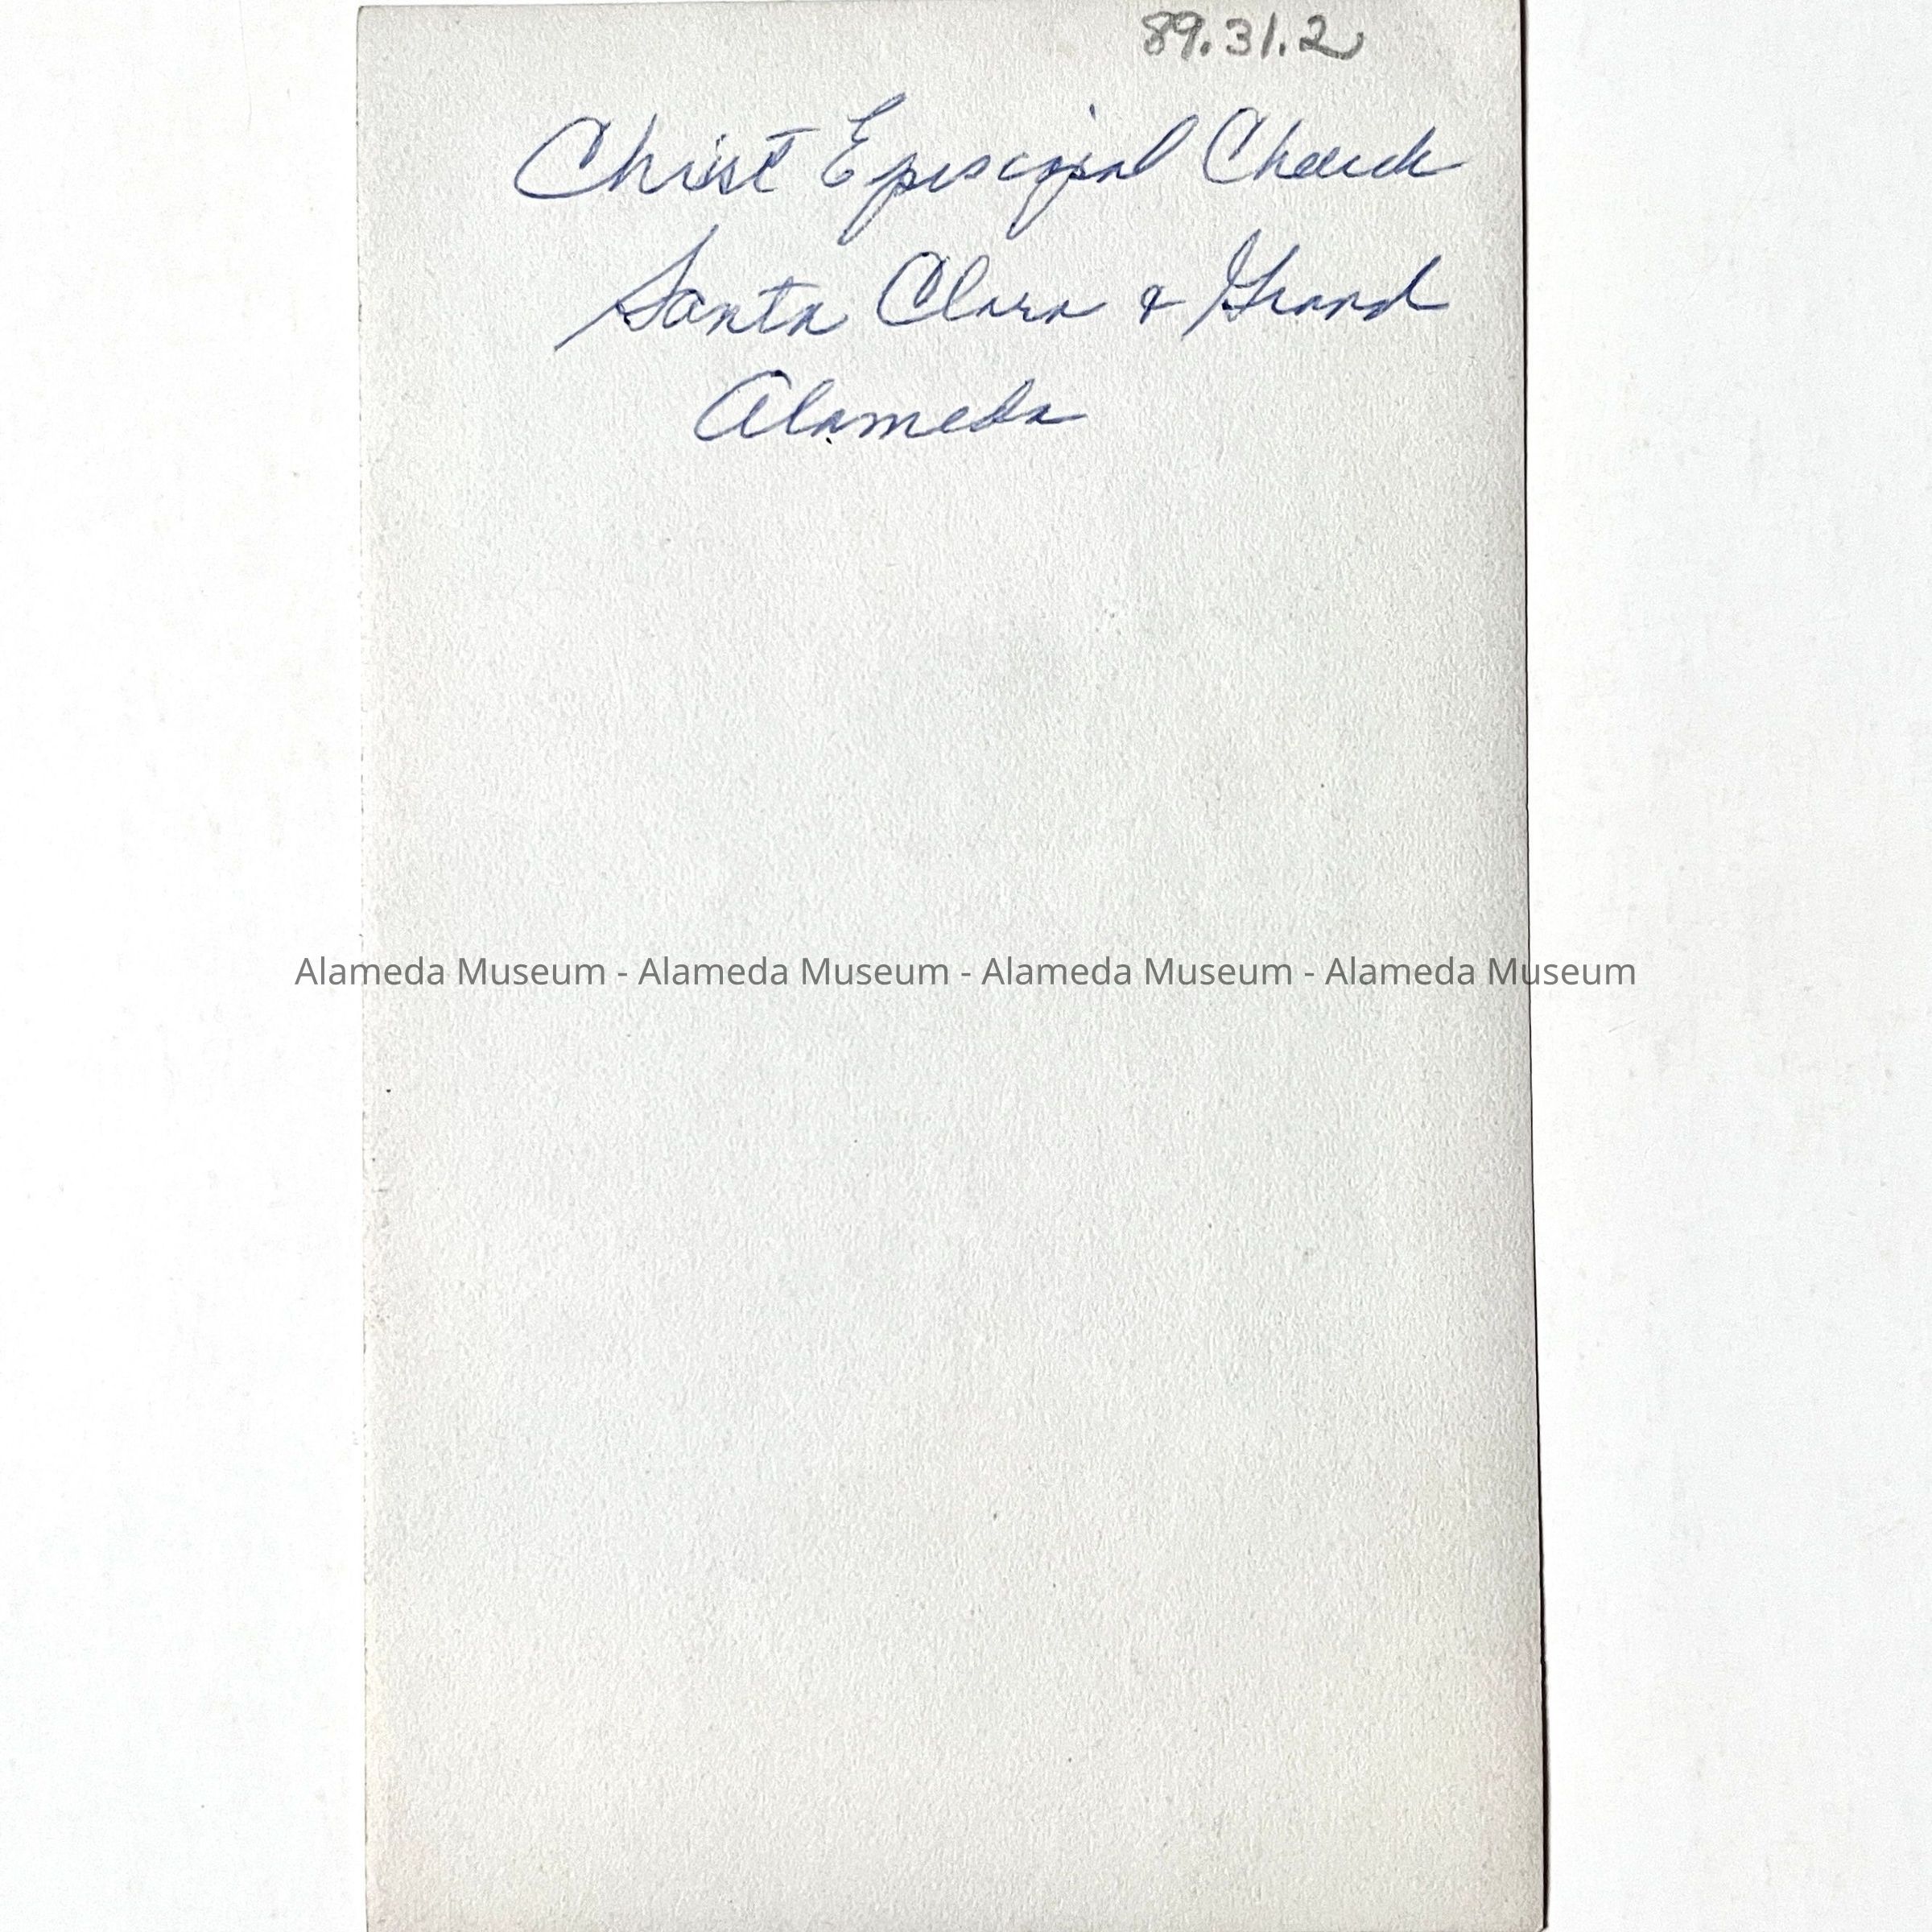 89.31.2
Christ Episcopal Church
Santa Clara & Grand
Alameda
Alameda Museum - Alameda Museum - Alameda Museum - Alameda Museum